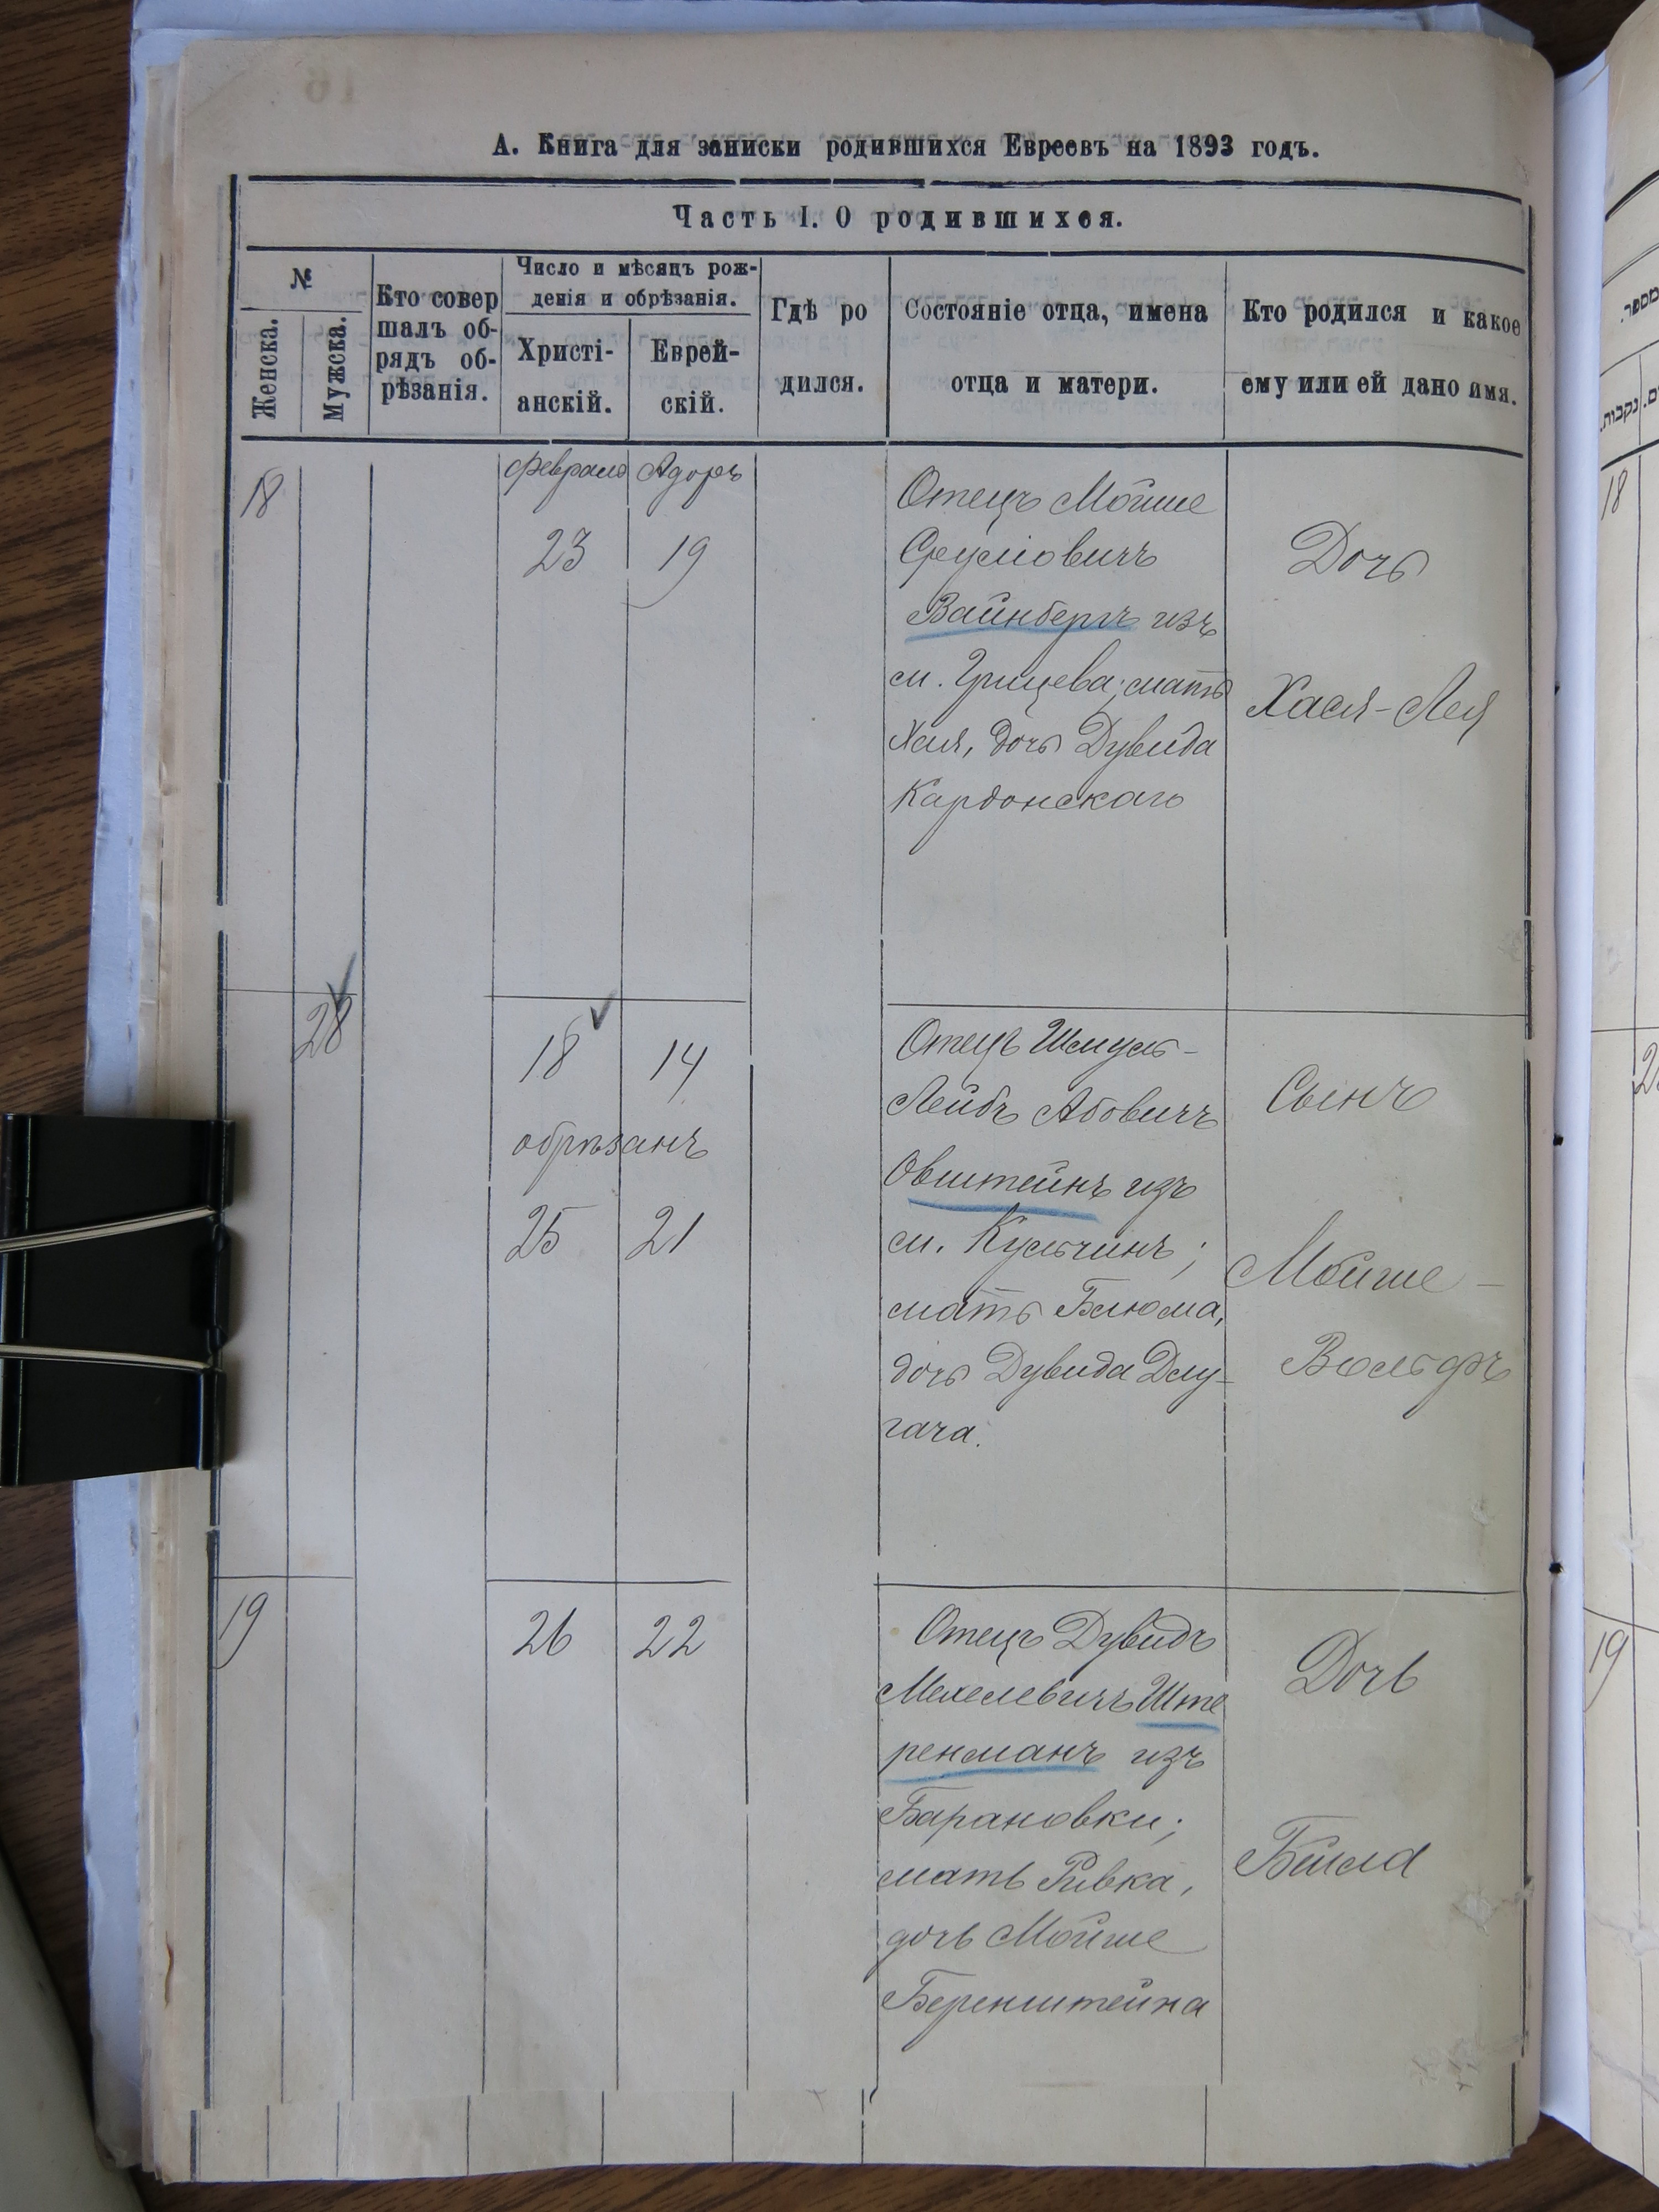 А. Книга для записки родившихся Евреевъ на 1893 годъ.
Часть I. О родившихся.
№
Женска.
Мужска.
Кто совер
шалъ об-
рядъ об-
рѣзанія.
Число и мѣсяцъ рож-
денія и обрѣзанія.
Христі-
анскій.
Еврей-
скій.
Гдѣ ро
дился.
Состояніе отца, имена
отца и матери.
Кто родился и какое
ему или ей дано имя.
18
Февраля
23
Адоръ
19
Отецъ Мойше
Сруліовичъ
Вайнбергъ изъ
м. Грицева; мать
Хая, дочь Дувида
Кардонскаго
Дочь
Хася-Лея
28
18
14
обрѣзанъ
25
21
Отецъ Шмуль-
Лейбъ Абовичъ
Овштейнъ изъ
м. Кульчинъ;
мать Блюма,
дочь Дувида Длу-
гача.
Сынъ
Мойше-
Вольфъ
19
26
22
Отецъ Дувидъ
Мехелевичъ Ште
ренманъ изъ
Барановки;
мать Ривка,
дочь Мойше
Беренштейна
Дочь
Бейла
18
19